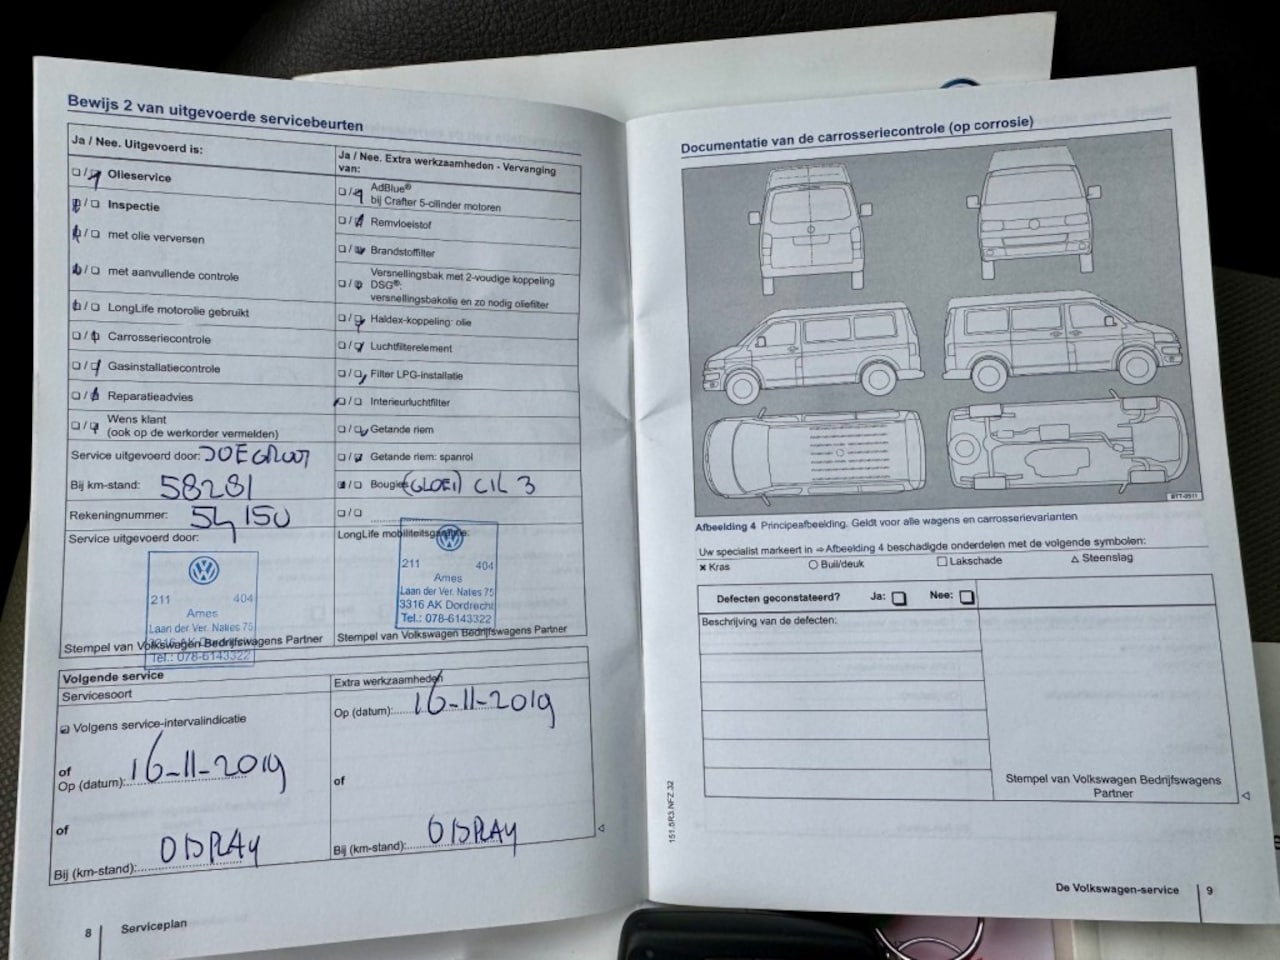 Bewijs 2 van uitgevoerde servicebeurten
Ja / Nee. Uitgevoerd is:
Olieservice
Inspectie
met olie verversen
met aanvullende controle
LongLife motorolie gebruikt
Carrosseriecontrole
Gasinstallatiecontrole
Reparatieadvies
Wens klant
(ook op de werkorder vermelden)
Service uitgevoerd door:
Bij km-stand: 58281
Rekeningnummer: 54150
Service uitgevoerd door:
211 404
Ames
Laan der Ver. Naties 75
3316 AK Dordrecht
Tel.: 078-6143322
Stempel van Volkswagen Bedrijfswagens Partner
Ja / Nee. Extra werkzaamheden - Vervanging
van:
AdBlue®
bij Crafter 5-cilinder motoren
Remvloeistof
Brandstoffilter
Versnellingsbak met 2-voudige koppeling
DSG®:
versnellingsbakolie en zo nodig oliefilter
Haldex-koppeling: olie
Luchtfilterelement
Filter LPG-installatie
Interieurluchtfilter
Getande riem
Getande riem: spanrol
Bougies (GLOEI) CIL 3
LongLife mobiliteitsgarantie:
211 404
Ames
Laan der Ver. Naties 75
3316 AK Dordrecht
Tel.: 078-6143322
Stempel van Volkswagen Bedrijfswagens Partner
Volgende service
Servicesoort
Volgens service-intervalindicatie
of
Op (datum): 16-11-2019
of
Bij (km-stand): DISPLAY
Extra werkzaamheden
Op (datum): 16-11-2019
of
Bij (km-stand): DISPLAY
8 Serviceplan
Documentatie van de carrosseriecontrole (op corrosie)
BTT-0511
Afbeelding 4 Principeafbeelding. Geldt voor alle wagens en carrosserievarianten
Uw specialist markeert in ⇒ Afbeelding 4 beschadigde onderdelen met de volgende symbolen:
× Kras ○ Buil/deuk □ Lakschade △ Steenslag
Defecten geconstateerd? Ja: Nee:
Beschrijving van de defecten:
Stempel van Volkswagen Bedrijfswagens
Partner
151.5R3.NFZ.32
De Volkswagen-service 9